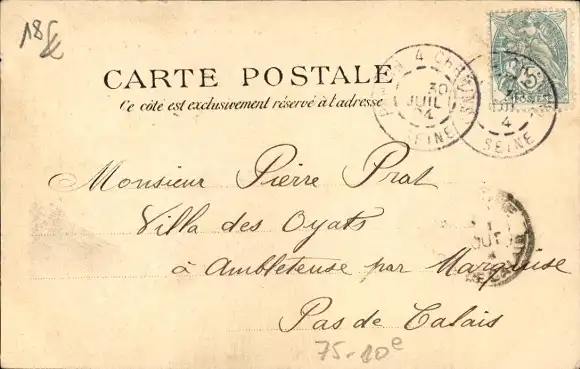 18 
CARTE POSTALE
Ce côté est exclusivement réservé à l'adresse
30
JUIL
04
SEINE
4
SEINE
5
POSTES
Monsieur Pierre Prat
Villa des Oyats
à Ambleteuse par Marquise
Pas de Calais
75-10e